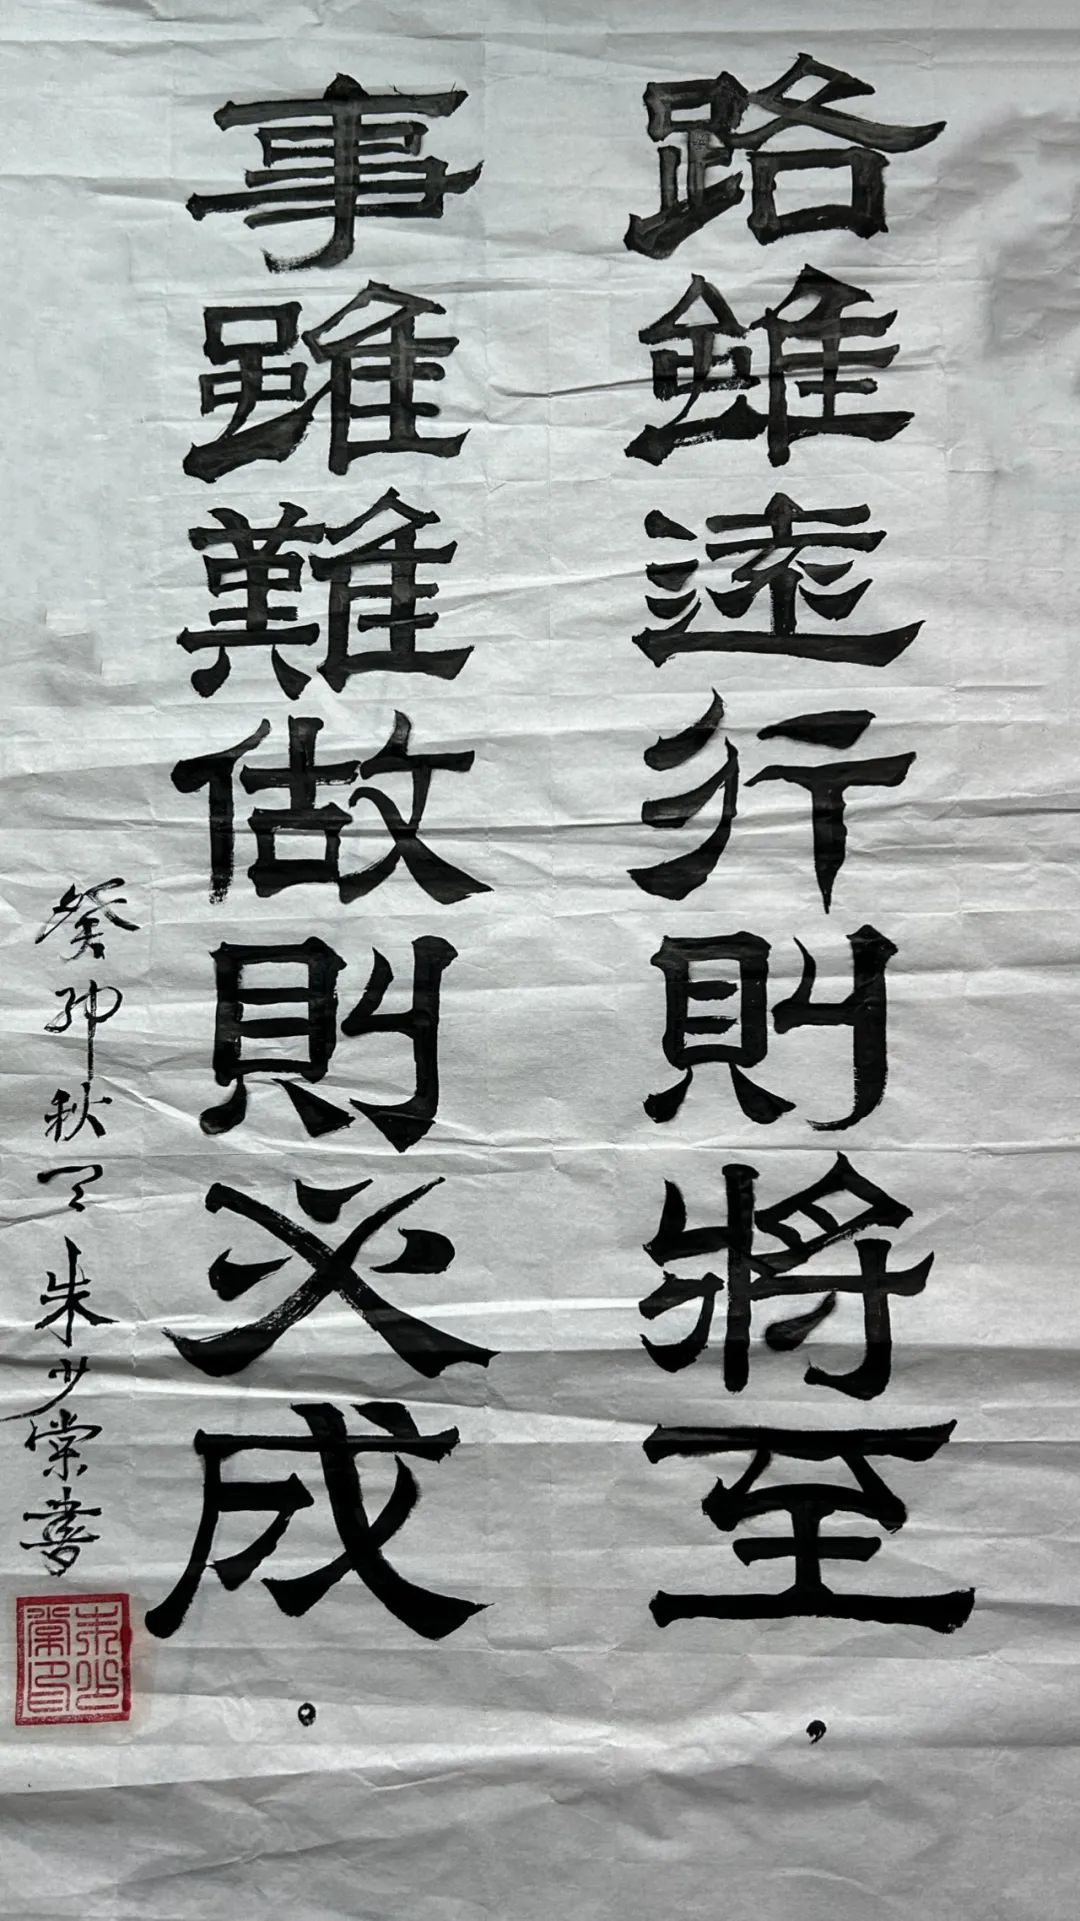 路雖遠行則將至，
事雖難做則必成。
癸卯秋朱少棠書
朱少棠印